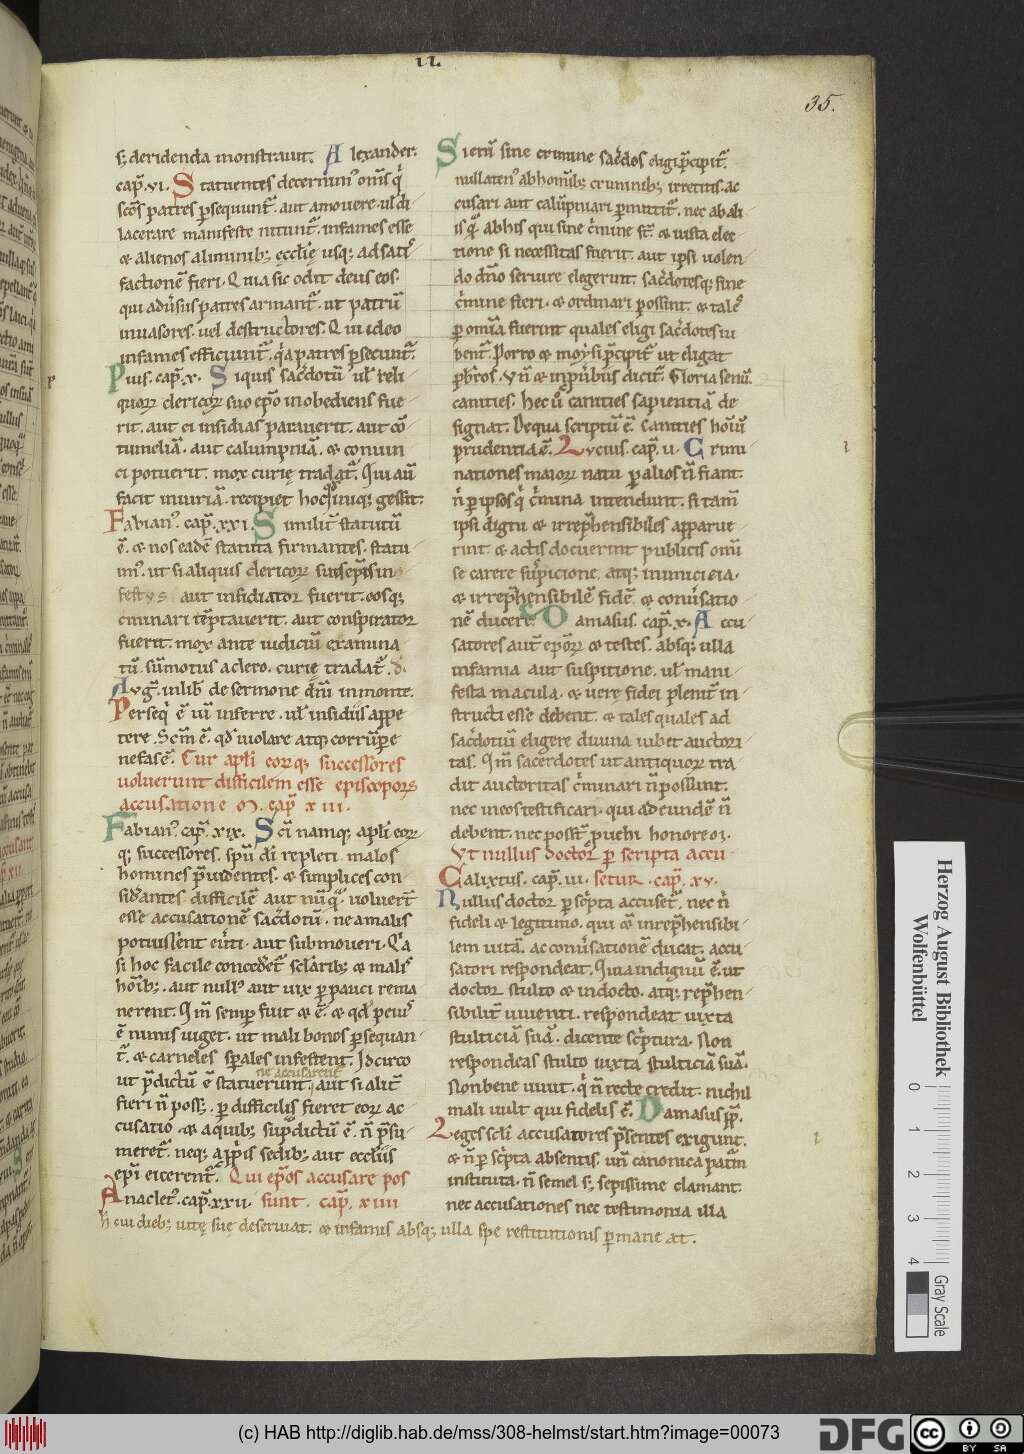 II.
35.
s; deridenda monstrauit. Alexander.
cap̄. vi. Statuentes decernim' om̄s q'
scōs patres ꝑsequunt̄. aut amouere. ul' di
lacerare manifeste nitunt̄. infames esse
& alienos a liminib; ęcclię usq; ad satis
factionē fieri. Quia sic odit deus eos.
qui adūsus patres armant̄. ut patrū
inuasores. uel destructores. Qui ideo
infames efficiunt̄. q'a patres ꝑsecunt̄.
Pius. cap̄. x. Siquis sacdotū ul' reli
quoꝝ clericoꝝ suo ep̄o inobediens fue
rit. aut ei insidias parauerit. aut cō
tumeliā. aut calumpniā. & conuin
ci potuerit. mox curię tradat̄. Qui aū
facit iniuriā. recipiet hoc qđ iniq; gessit.
Fabian'. cap̄. xxi. Similit̄ statutū
ē. & nos eadē statuta firmantes. statu
im'. ut si aliquis clericoꝝ suis ep̄is in
festus aut insidiator fuerit. eosq;
c'minari tēptauerit. aut conspirator
fuerit. mox ante iudiciū examina
tū. sūmotus a clero. curię tradat̄.
Avḡ. in lib̄ de sermone dn̄i in monte.
Perseq' ē uim̄ inferre. ul' insidiis appe
tere. Scm̄ ē. qđ uiolare atq; corrūpe
nefas ē. Cur apl'i eorq; successores
uoluerunt difficilem esse episcoporꝝ
accusatione m. cap̄ xiii.
Fabian'. cap̄. xix. Sc̄i namq; apl'i eoꝝ
q; successores. sp̄u d̄i repleti. malos
homines p̄uidentes. & simplices con
sid'antes. difficilē aut nūq' uoluert̄
esse accusationē sac'dotū. ne a malis
potuissent eu'ti. aut submoueri. Q'a
si hoc facile concedet̄ sclarib; & malis
hoīb;. aut null' aut uix ꝑpauci rema
nerent. Qm̄ semꝑ fuit & ē. & qđ peius
ē nimis uiget. ut mali bonos ꝑsequan
t̄. & carneles sp̄ales infestent. Idcirco
ut p̄dictū ē statuerunt ne accusarent̄. aut si alit̄
fieri n̄ poss;. ꝑ difficilis fieret eoꝝ ac
cusatio. & a quib; sup̄dictū ē. n̄ p̄su
meret̄. neq; a pp̄riis sedib; aut eccliis
ep̄i eicerent̄. Qui ep̄os accusare pos
Anaclet'. cap̄. xxii. sunt. cap̄. xiiii
n̄ cui dieb; uitę suę deseruiat. & infamis absq; ulla spe restitutionis ꝑmaneat.
Si enī sine crimine sac'dos eligi p̄cipit̄.
nullaten' ab hoīnib; criminib; irretitis. ac
cusari aut calūpniari ꝑmittit̄. nec ab ali
is q' ab his qui sine c'mine st̄. & iuxta elec
tione si necessitas fuerit. aut ipsi uolen
do dn̄o seruire elegerint. sac'dotesq; sine
c'mine fieri. & ordinari possint. & tales
ꝑ omīa fuerint quales eligi sac'dotes iu
bent̄. Porro & moysi p̄cipit̄ ut eligat
p̄bros. Vn̄ & in ꝓu'biis dicit̄. Gloria senū.
canities. hec u' canities sapientiā de
signat. De qua scriptū ē. Canities hoīū
prudentia ē. Lucius. cap̄. ii. Crimi
nationes maioꝝ natu ꝑ alios n̄ fiant.
n̄ ꝑ ipsos q' c'mina intendunt. si tam̄
ipsi digni & irrep̄hensibiles apparue
rint & actis docuerint publicis omī
se carere su'picione. atq; inimicicia.
& irrep̄hensibilē fidē. & conu'satio
nē ducere. Damasus. cap̄. x. Accu
satores aut̄ ep̄oꝝ & testes. absq; ulla
infamia aut suspitione. ul' mani
festa macula. & uerę fidei plenit̄ in
structi esse debent. & tales quales ad
sac'dotiū eligere diuina iubet auctori
tas. Qm̄ sacerdotes ut antiquoꝝ tra
dit auctoritas c'minari n̄ possunt.
nec in eos testificari. qui ad eundē n̄
debent. nec possт̄ ꝓuehi honorem.
Vt nullus doctor ꝑ scripta accu
Calixtus. cap̄. iii. setur. cap̄. xv.
Nullus doctor ꝑ sc'pta accuset̄. nec n̄
fideli & legitimo. qui & inrep̄hensibi
lem uitā. ac conu'sationē ducat. accu
satori respondeat. Quia indignū ē. ut
doctor stulto & indocto. atq; rep̄hen
sibilit̄ uiuenti. respondeat iuxta
stulticiā suā. dicente sc'ptura. Non
respondeas stulto iuxta stulticiā suā.
Non bene uiuit. q' n̄ recte credit. nichil
mali uult qui fidelis ē. Damasus pp̄.
Leges scl'i accusatores p̄sentes exigunt.
& n̄ ꝑ sc'pta absentis. un̄ canonica patrū
instituta. n̄ semel s; sepissime clamant.
nec accusationes nec testimonia illa
Herzog August Bibliothek
Wolfenbüttel
0 1 2 3 4
Gray Scale
(c) HAB http://diglib.hab.de/mss/308-helmst/start.htm?image=00073
DFG
cc BY SA